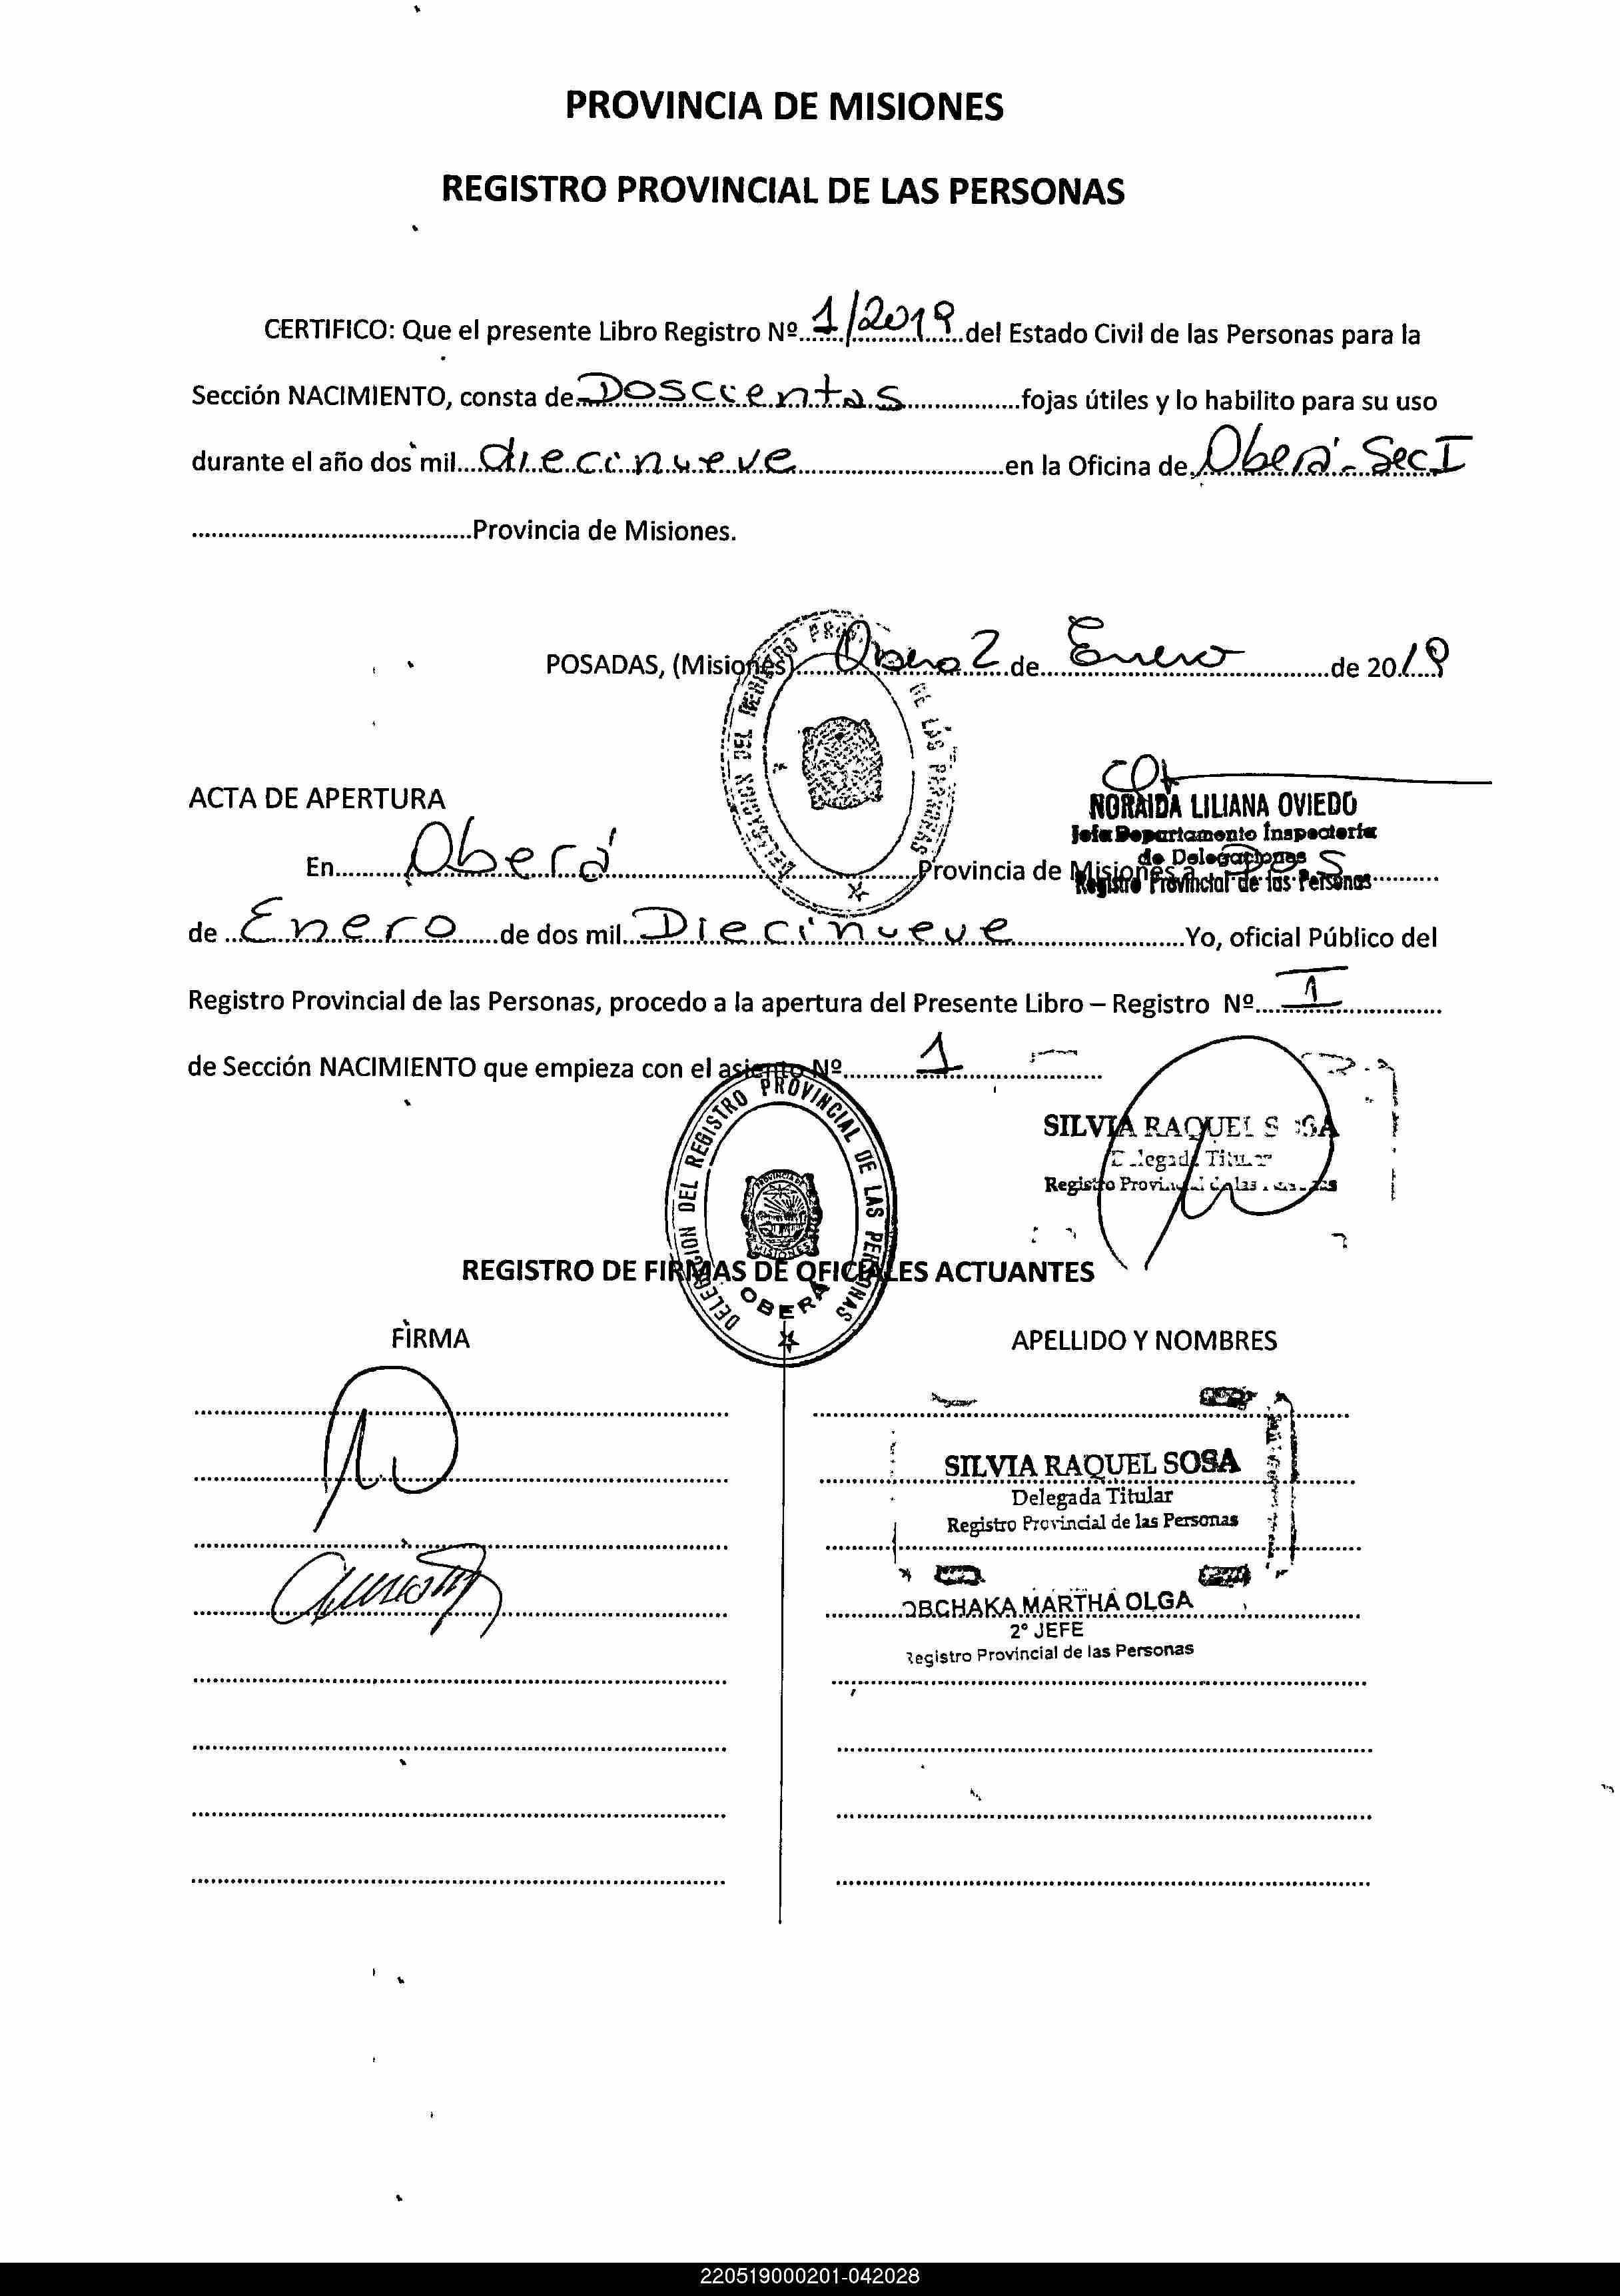 PROVINCIA DE MISIONES
REGISTRO PROVINCIAL DE LAS PERSONAS
CERTIFICO: Que el presente Libro Registro Nº 1/2019 del Estado Civil de las Personas para la
Sección NACIMIENTO, consta de Doscientos fojas útiles y lo habilito para su uso
durante el año dos mil diecinueve en la Oficina de Oberá - Sec I
Provincia de Misiones.
POSADAS, (Misiones) Oberá 2 de Enero de 2019
ACTA DE APERTURA
NORAIDA LILIANA OVIEDO
Jefa Departamento Inspectoría
de Delegaciones
Registro Provincial de las Personas
En Oberá Provincia de Misiones a Dos
de Enero de dos mil Diecinueve Yo, oficial Público del
Registro Provincial de las Personas, procedo a la apertura del Presente Libro – Registro Nº 1
de Sección NACIMIENTO que empieza con el asiento Nº 1
DELEGACION DEL REGISTRO PROVINCIAL DE LAS PERSONAS
OBERÁ
SILVIA RAQUEL SOSA
Delegada Titular
Registro Provincial de las Personas
REGISTRO DE FIRMAS DE OFICIALES ACTUANTES
FIRMA APELLIDO Y NOMBRES
SILVIA RAQUEL SOSA
Delegada Titular
Registro Provincial de las Personas
OBCHAKA MARTHA OLGA
2º JEFE
Registro Provincial de las Personas
220519000201-042028